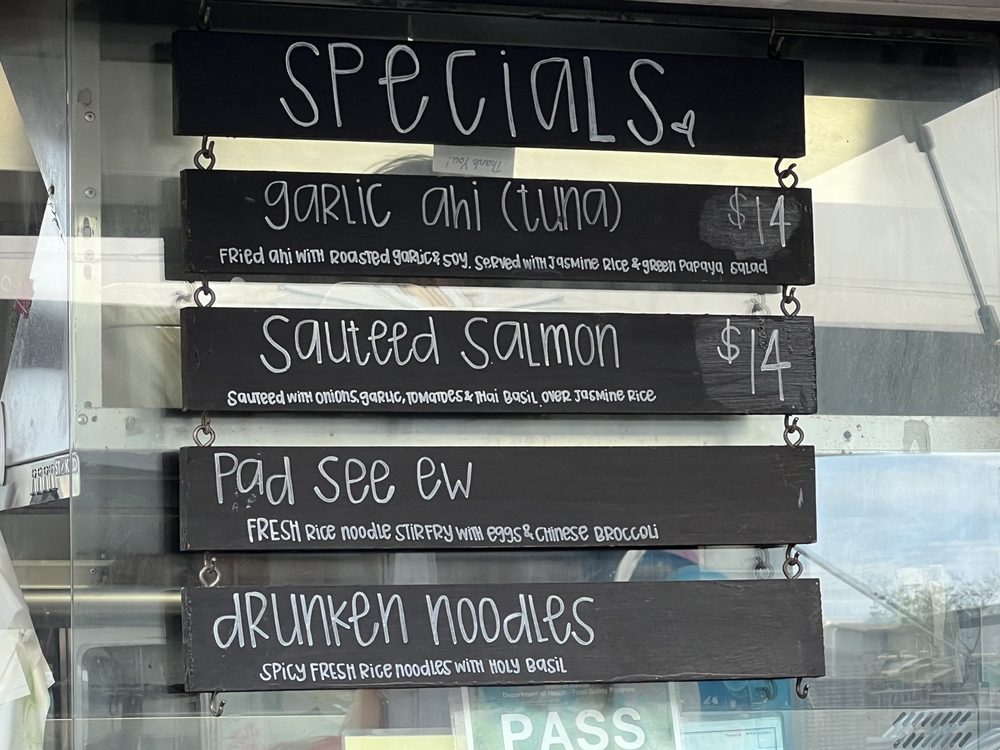 SPeCiaLS
Thank You!
GaRLiC ahi (tuna) $14
FRied ahi WiTH Roasted garlic & soy. Served with Jasmine Rice & green Papaya Salad
Sauteed SaLmon $14
Sauteed with onions, garlic, Tomatoes & Thai Basil over Jasmine Rice
Pad See ew
FRESH Rice noodle STIRFRY with eggs & CHinese BROCCOLi
dRunken noodLes
SPicy FRESH Rice noodles with HOLY BasiL
Department of Health | Food Safety Program
PASS